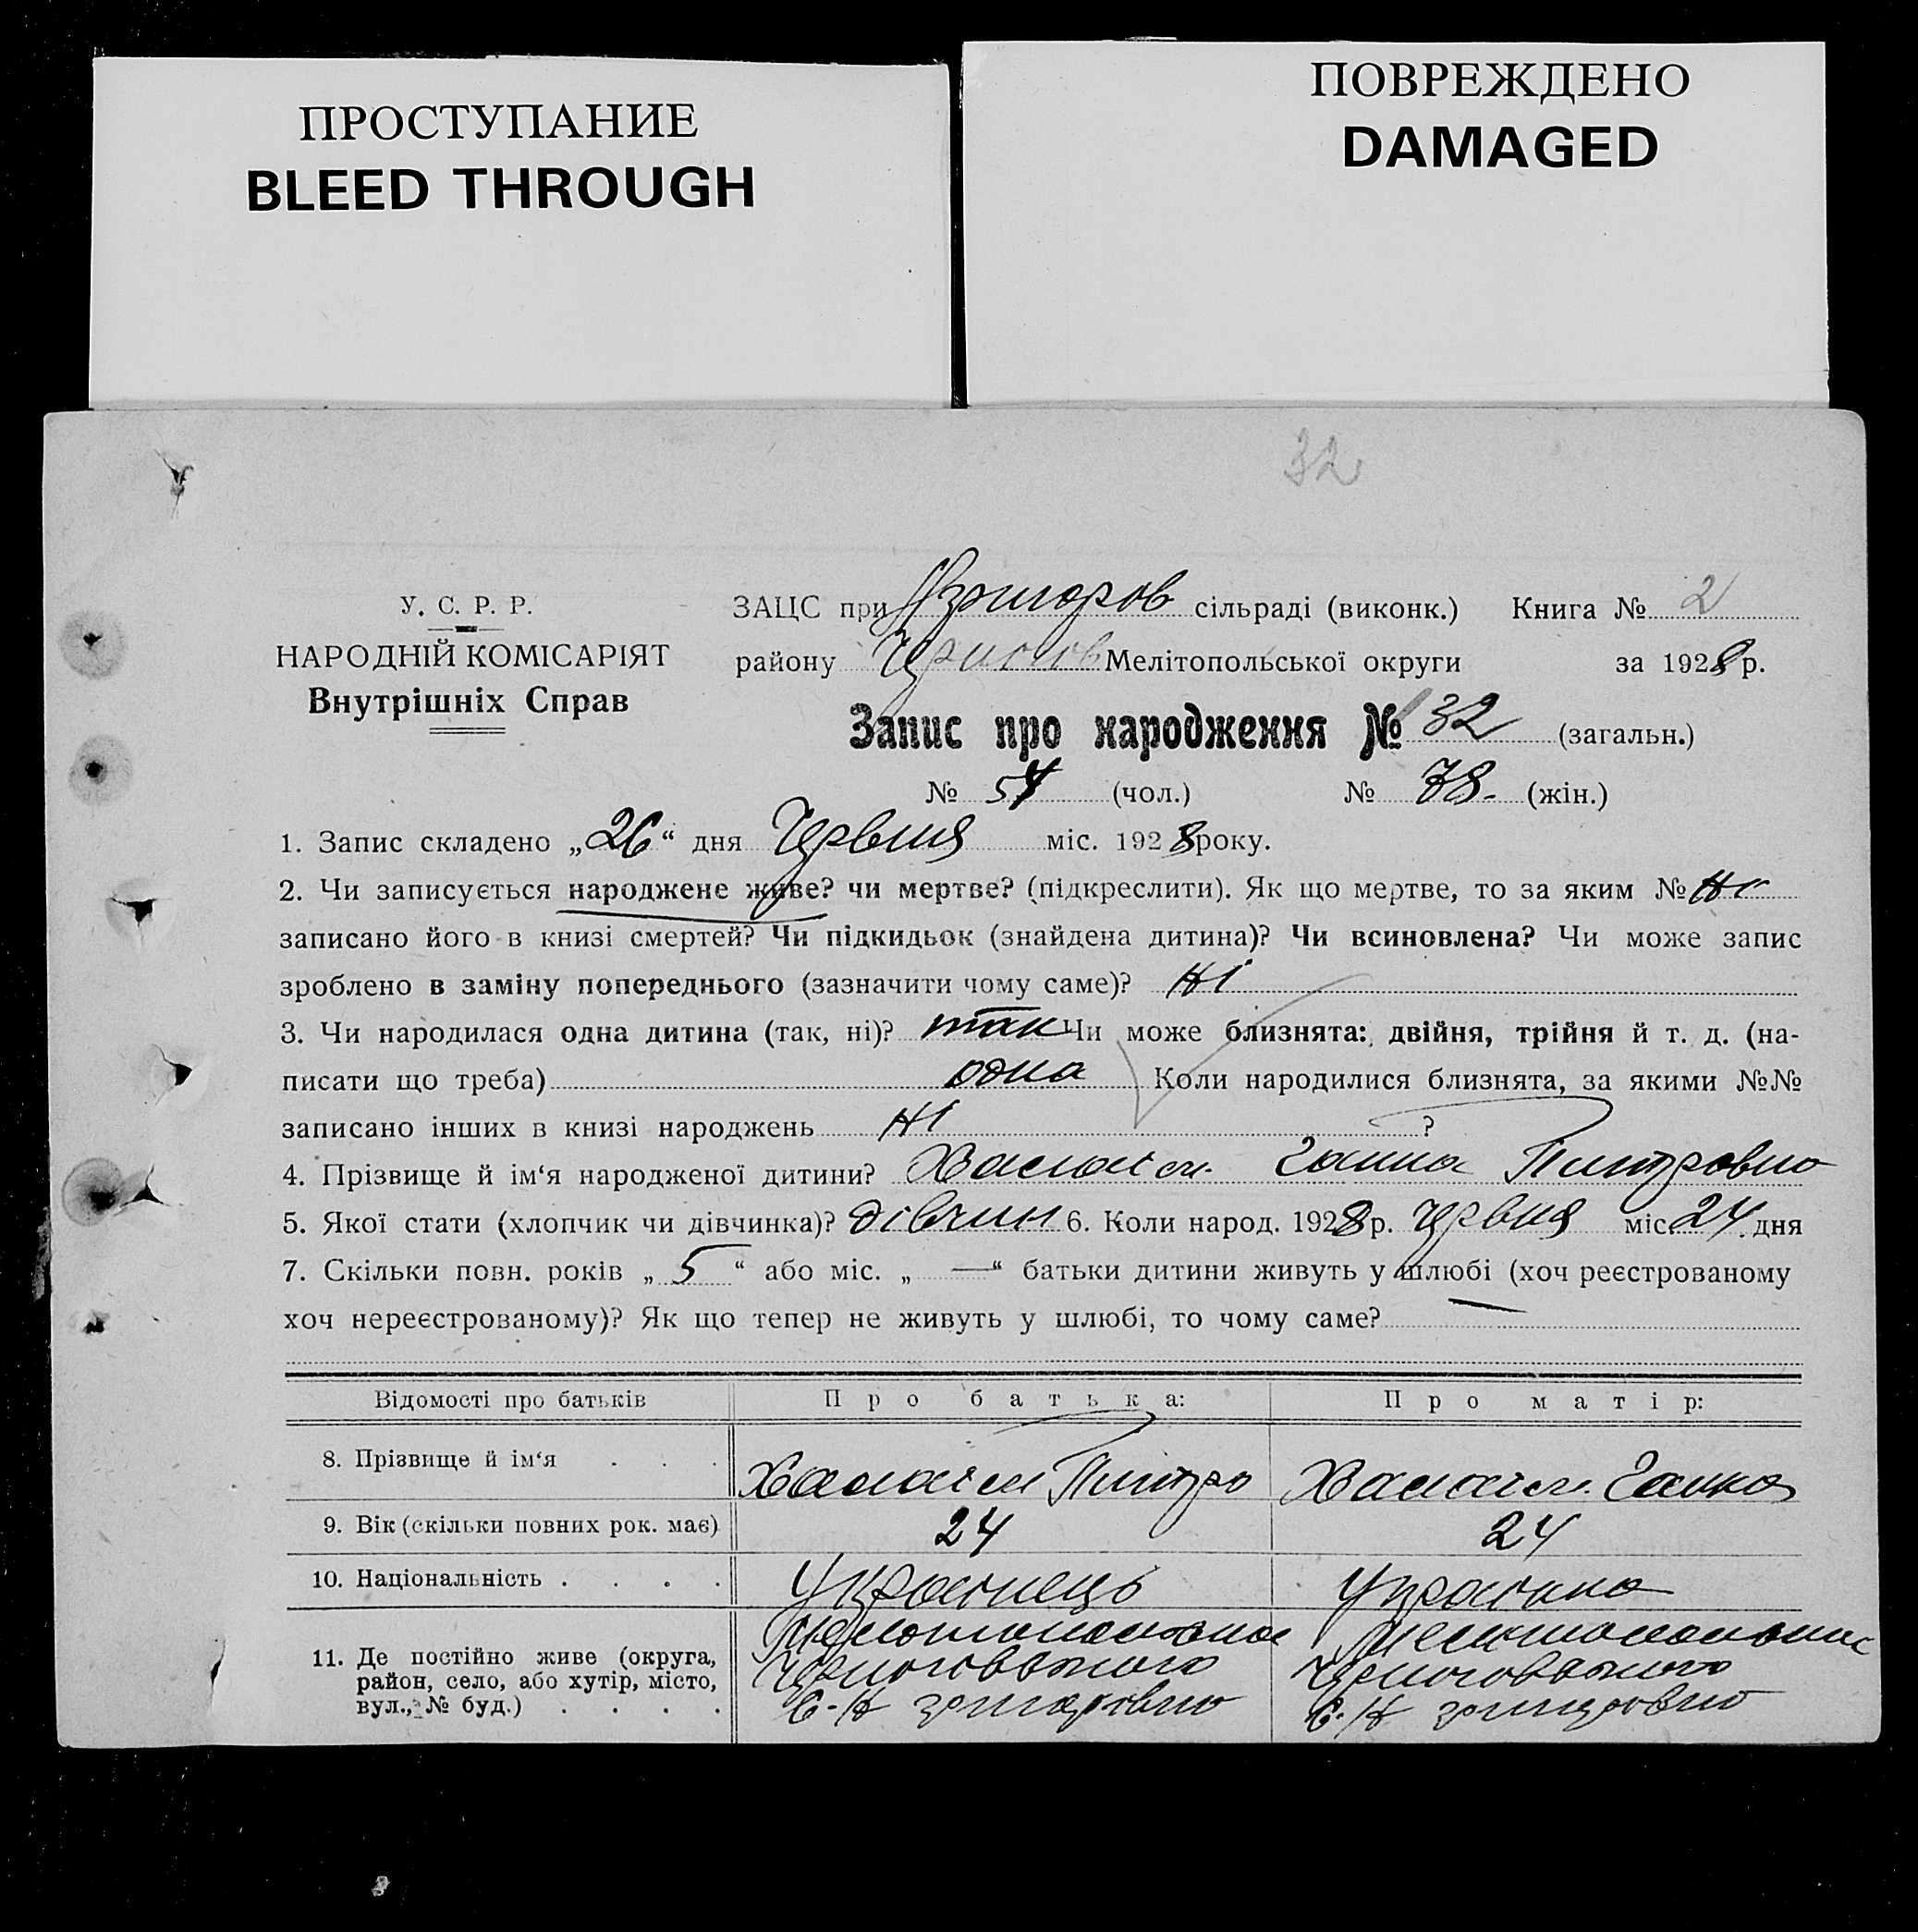 ПРОСТУПАНИЕ
BLEED THROUGH
ПОВРЕЖДЕНО
DAMAGED
32
У. С. Р. Р.
НАРОДНІЙ КОМІСАРІЯТ
Внутрішніх Справ
ЗАЦС при сільраді (виконк.) Книга № 2
району Мелітопольської округи за 1928 р.
Запис про народження № 32 (загальн.)
№ 54 (чол.) № 78. (жін.)
1. Запис складено „26“ дня Червня міс. 1928 року.
2. Чи записується народжене живе? чи мертве? (підкреслити). Як що мертве, то за яким № Ні
записано його в книзі смертей? Чи підкидьок (знайдена дитина)? Чи всиновлена? Чи може запис
зроблено в заміну попереднього (зазначити чому саме)? Ні
3. Чи народилася одна дитина (так, ні)? так Чи може близнята: двійня, трійня й т. д. (на-
писати що треба) одна Коли народилися близнята, за якими №№
записано інших в книзі народжень Ні ?
4. Прізвище й ім‘я народженої дитини? Ганна
5. Якої стати (хлопчик чи дівчинка)? дівчин 6. Коли народ. 1928 р. Червня міс. 24. дня
7. Скільки повн. років „ 5 “ або міс. „ — “ батьки дитини живуть у шлюбі (хоч реєстрованому
хоч нереєстрованому)? Як що тепер не живуть у шлюбі, то чому саме? —
Відомості про батьків Про батька: Про матір:
8. Прізвище й ім‘я . . . Ганна
9. Вік (скільки повних рок. має) 24 24
10. Національність . . . . Українець Українка
11. Де постійно живе (округа,
район, село, або хутір, місто,
вул., № буд.) . . . .